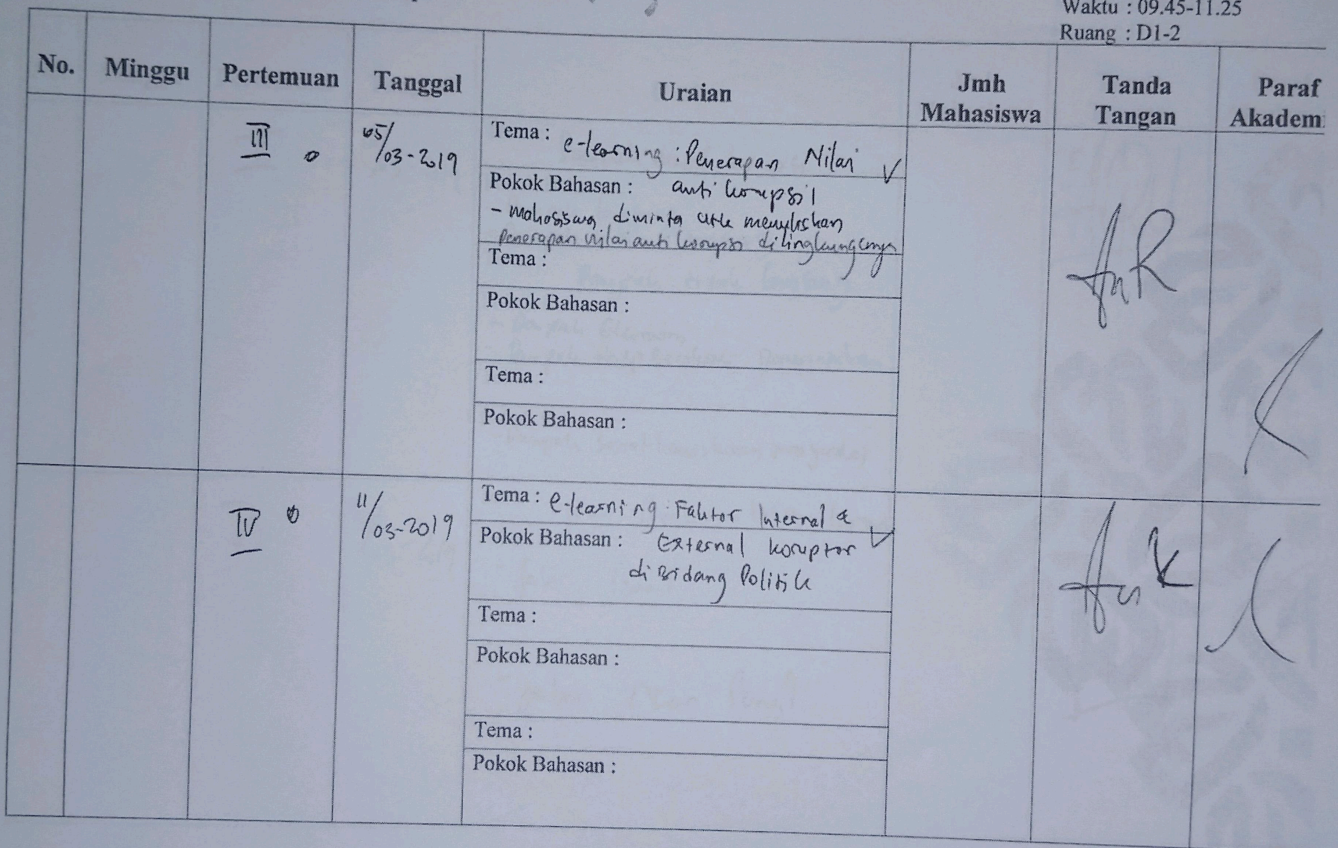 Waktu : 09.45-11.25
Ruang : D1-2
No. Minggu Pertemuan Tanggal Uraian Jmh Mahasiswa Tanda Tangan Paraf Akadem
III 05/03-2019
Tema : e-learning : Penerapan Nilai
Pokok Bahasan : anti korupsi
- mahasiswa diminta utk menuliskan
penerapan nilai anti korupsi dilingkungannya
Tema :
Pokok Bahasan :
Tema :
Pokok Bahasan :
IV 11/03-2019
Tema : e-learning : Faktor Internal &
Pokok Bahasan : External koruptor
di Bidang Politik
Tema :
Pokok Bahasan :
Tema :
Pokok Bahasan :